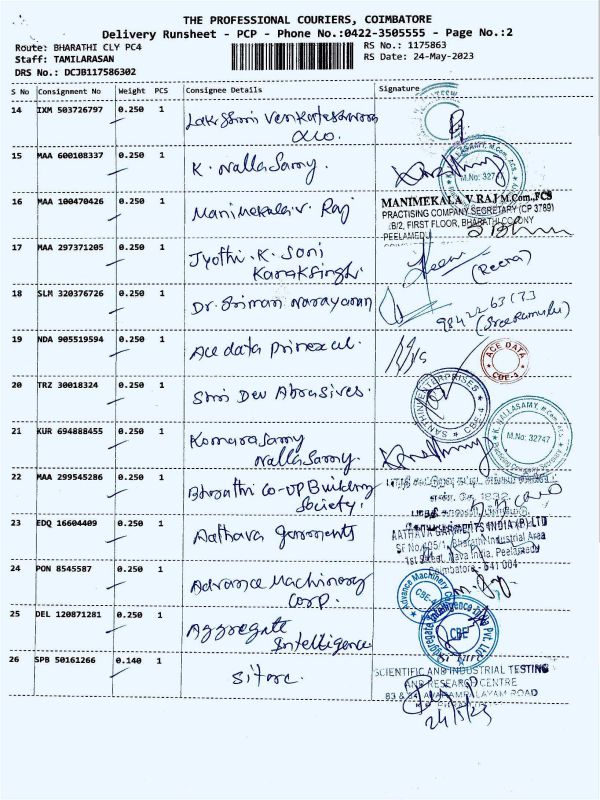 THE PROFESSIONAL COURIERS, COIMBATORE
Delivery Runsheet - PCP - Phone No.:0422-3505555 - Page No.:2
Route: BHARATHI CLY PC4
RS No.: 1175863
Staff: TAMILARASAN
RS Date: 24-May-2023
DRS No.: DCJB117586302
S No Consignment No Weight PCS Consignee Details Signature
14 IXM 503726797 0.250 1
Lakshmi Venkateshwara
15 MAA 600108337 0.250 1
K. Nalla Samy.
M.No: 3274
16 MAA 100470426 0.250 1
Manimekala.V. Raj
MANIMEKALA V RAJ M.Com.,FCS
PRACTISING COMPANY SECRETARY (CP 3789)
FIRST FLOOR, BHARATHI COLONY
PEELAMED
17 MAA 297371205 0.250 1
Jyothi.K. Soni
Karaksinghi.
18 SLM 320376726 0.250 1
Dr. Sriman Narayanan
19 NDA 905519594 0.250 1
Ace data Primexcel.
ACE DATA
CBE-4
20 TRZ 30018324 0.250 1
Shri Dev Abrasives.
ENTERPRISES
CBE-4
21 KUR 694888455 0.250 1
Komarasamy
Nalla Samy.
K. NALLASAMY, M.Com, ACS.
M.No: 32747
Practising Company Secretary
22 MAA 299545286 0.250 1
Bharathi Co-OP Building
Society.
23 EDQ 16604409 0.250 1
Aathava garments
AATHAVA GARMENTS INDIA (P) LTD
Bharathi Industrial Area
1st Street, Nava India, Peelamedu
Coimbatore - 641 004
24 PON 8545587 0.250 1
Advance Machinery
Corp.
Advance Machinery
CBE-
25 DEL 120871281 0.250 1
Aggregate
Intelligence
Aggregate Intelligence Pvt. Ltd
CBE
26 SPB 50161266 0.140 1
Sitarc.
SCIENTIFIC AND INDUSTRIAL TESTING
AND RESEARCH CENTRE
AVARAMPALAYAM ROAD
24/5/23